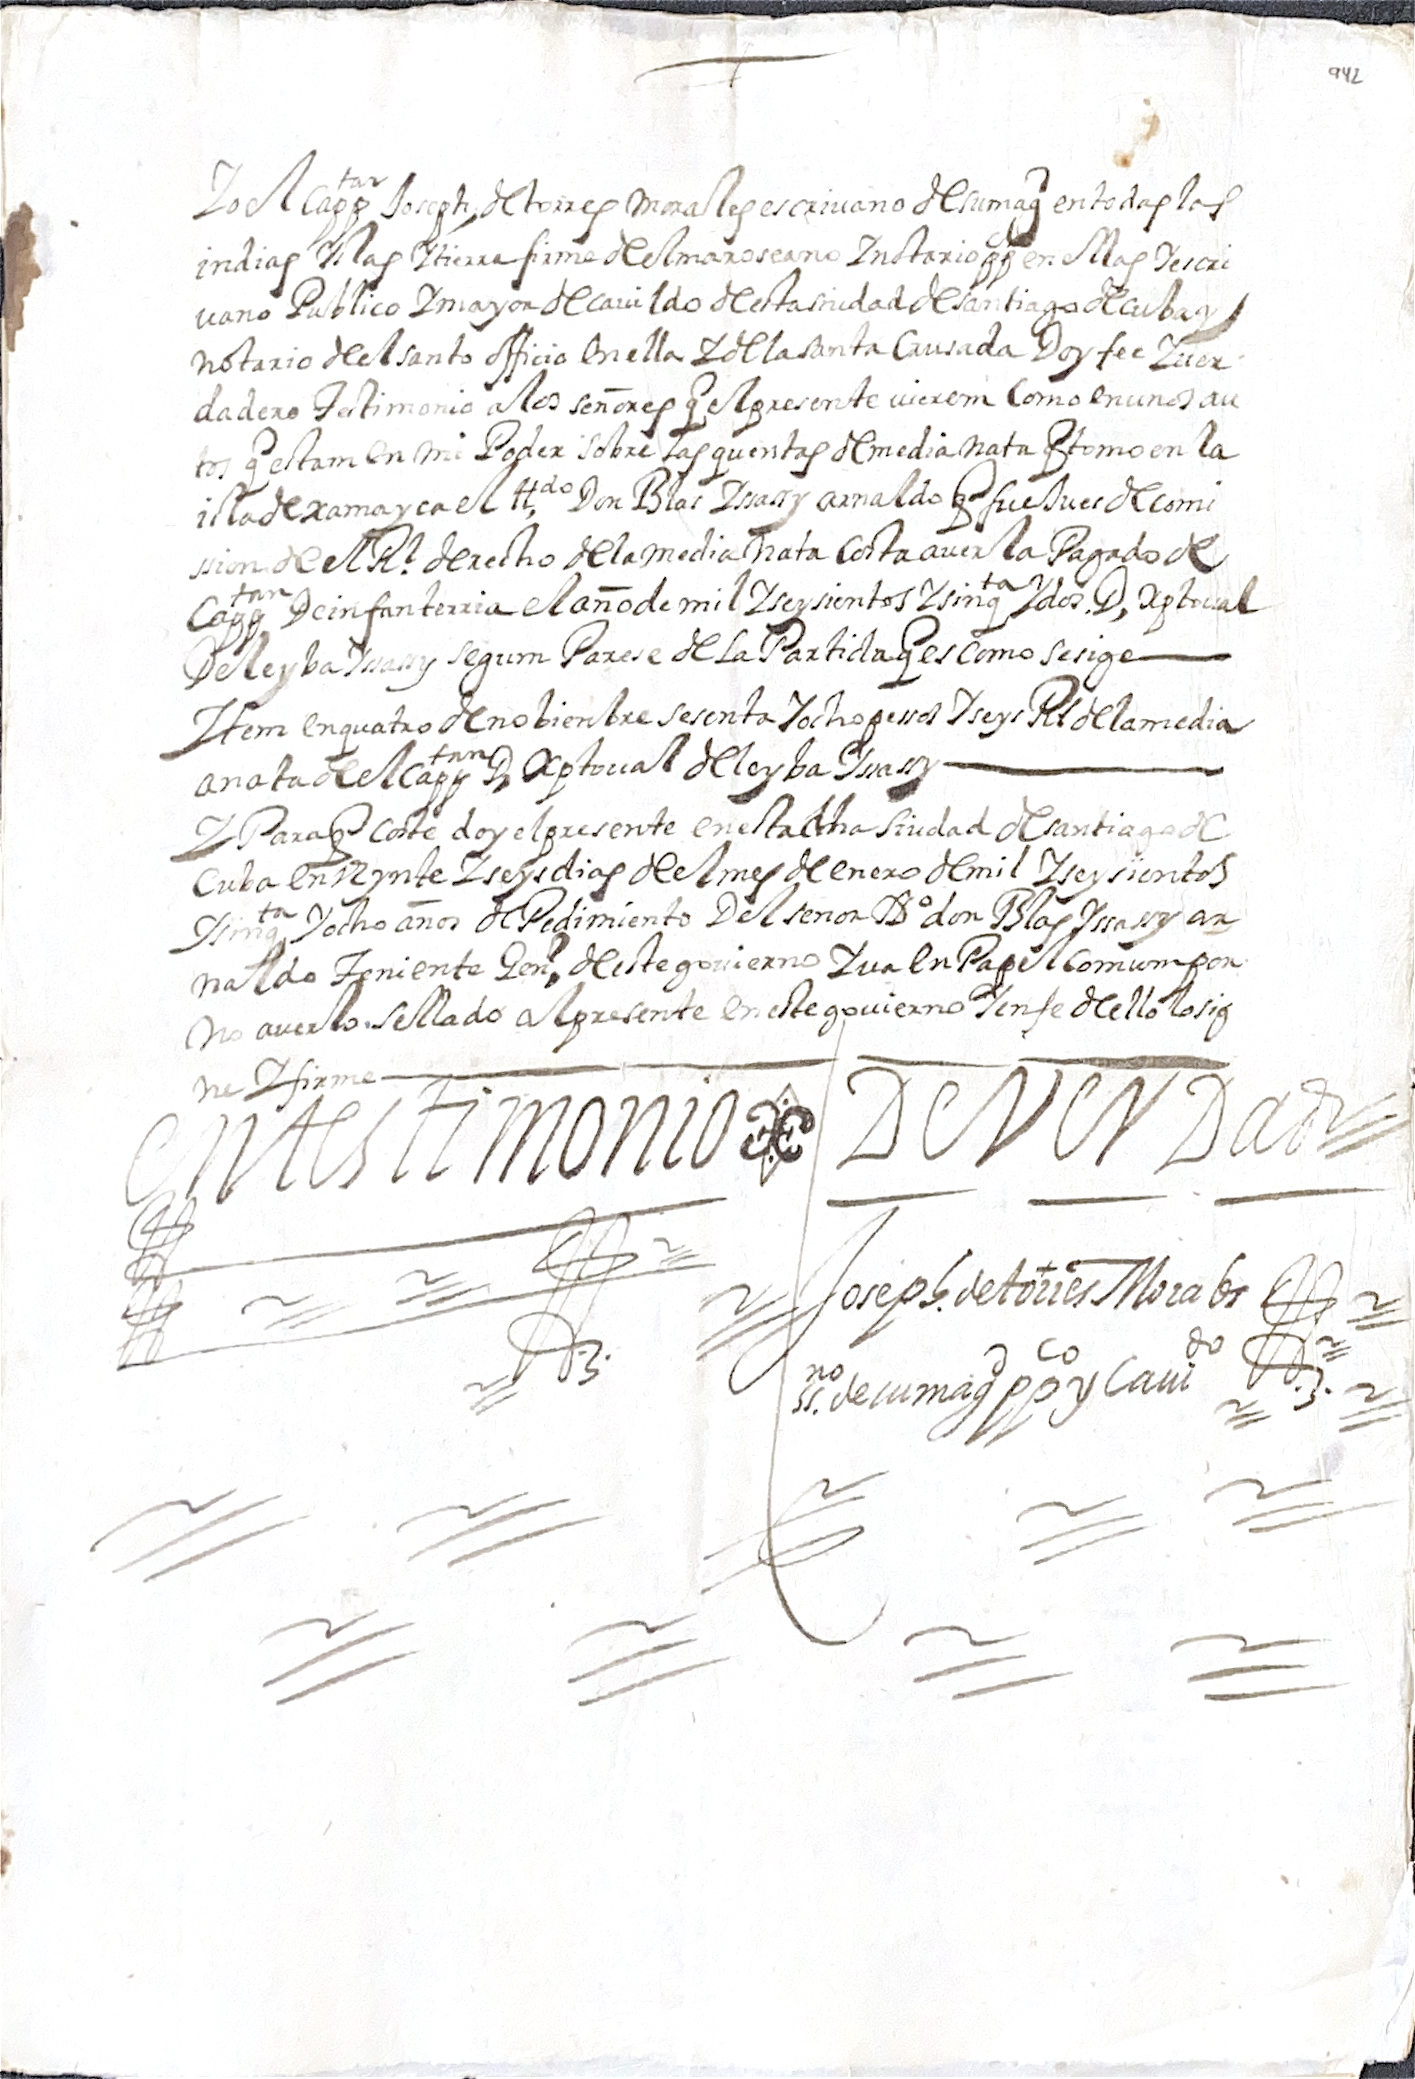 942
Yo el Capptan Joseph de torres morales escriuano de su magd en todas las
indias Yslas Ytierra firme del mar oseano Ynotario pp en ellas Yescri
uano Publico Ymayor de cauildo de esta siudad de santiago de cuba y
notario de el santo officio en ella Y de la santa Crusada Doy fee Yuer
dadero Testimonio a los señores q el presente uierem Como en unos au
tos q estam en mi Poder sobre las quentas de media nata q tomo en la
isla de xamayca el lido Don Blas Yssassy arnaldo q fue Jues de comi
ssion de el Rl derecho de la media nata Costa auer la Pagado el
Capptan De infanterria el año de mil Yseysientos Ysinqta Ydos D, Xptoual
De leyba Yssassy segum Parese de la Partida q es como se sige
Ytem en quatro de nobienbre sesenta Yocho pessos Yseys Rs de la media
anata de el Capptan D, Xptoual de leyba Yssassy
Y Para q Coste doy el presente en esta dha Siudad de santiago de
Cuba en veynte Yseys dias de el mes de enero de mil Yseysientos
Ysinqta Yocho años de Pedimiento Del senor Ldo don Blas Yssassy ar
naldo Teniente Genl, de este gouierno Yua en Papel Comum por
no auerlo sellado al presente en este gouierno Yenfe de ello lo sig
ne Yfirme
en testimonio De VerDad
Joseph. de torres Morales
ssno. de su magd ppco y Cauido